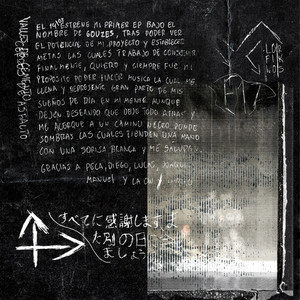 EL 14 ESTRENÉ MI PRIMER EP BAJO EL
NOMBRE DE GOUZES, TRAS PODER VER
EL POTENCIAL DE MI PROYECTO Y ESTABLECER
METAS LAS CUALES TRABAJO DE CONSEGUIR
FINALMENTE, QUIERO Y SIEMPRE FUE MI
PROPÓSITO PODER HACER MUSICA LA CUAL ME
LLENA Y REPRESENTE GRAN PARTE DE MIS
SUEÑOS DE DIA EN MI MENTE AUNQUE
DEJEN DESEANDO QUE DEJO TODO ATRAS Y
ME ACERQUE A UN CAMINO NEGRO DONDE
SOMBRAS LAS CUALES TIENDEN UNA MANO
CON UNA SONRISA BLANCA Y ME SALUDA
GRACIAS A PECA, DIEGO, LUCAS,
MANUEL Y LA CW
すべてに感謝しますま
た別の日
ましょう